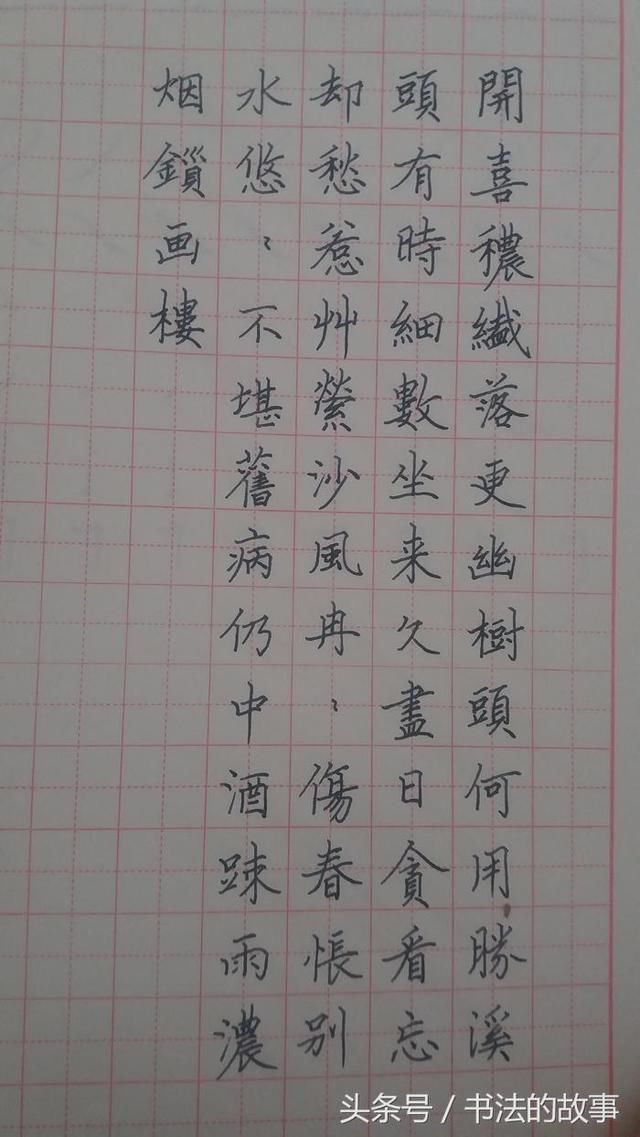 開喜穠纖落更幽樹頭何用勝溪
頭有時細數坐来久盡日貪看忘
却愁惹艸縈沙風冉〻傷春悵别
水悠〻不堪舊病仍中酒踈雨濃
烟鎖画樓
头条号 / 书法的故事